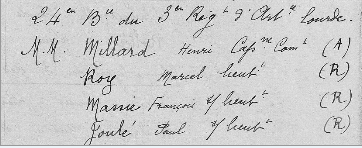 24en Bie du 3en Régt d'Artie Lourde.
M.M. Millard Henri Capne Comt (A)
Roy Marcel lieutt (R)
Massie François s/lieutt (R)
Joulé Paul s/lieutt (R)